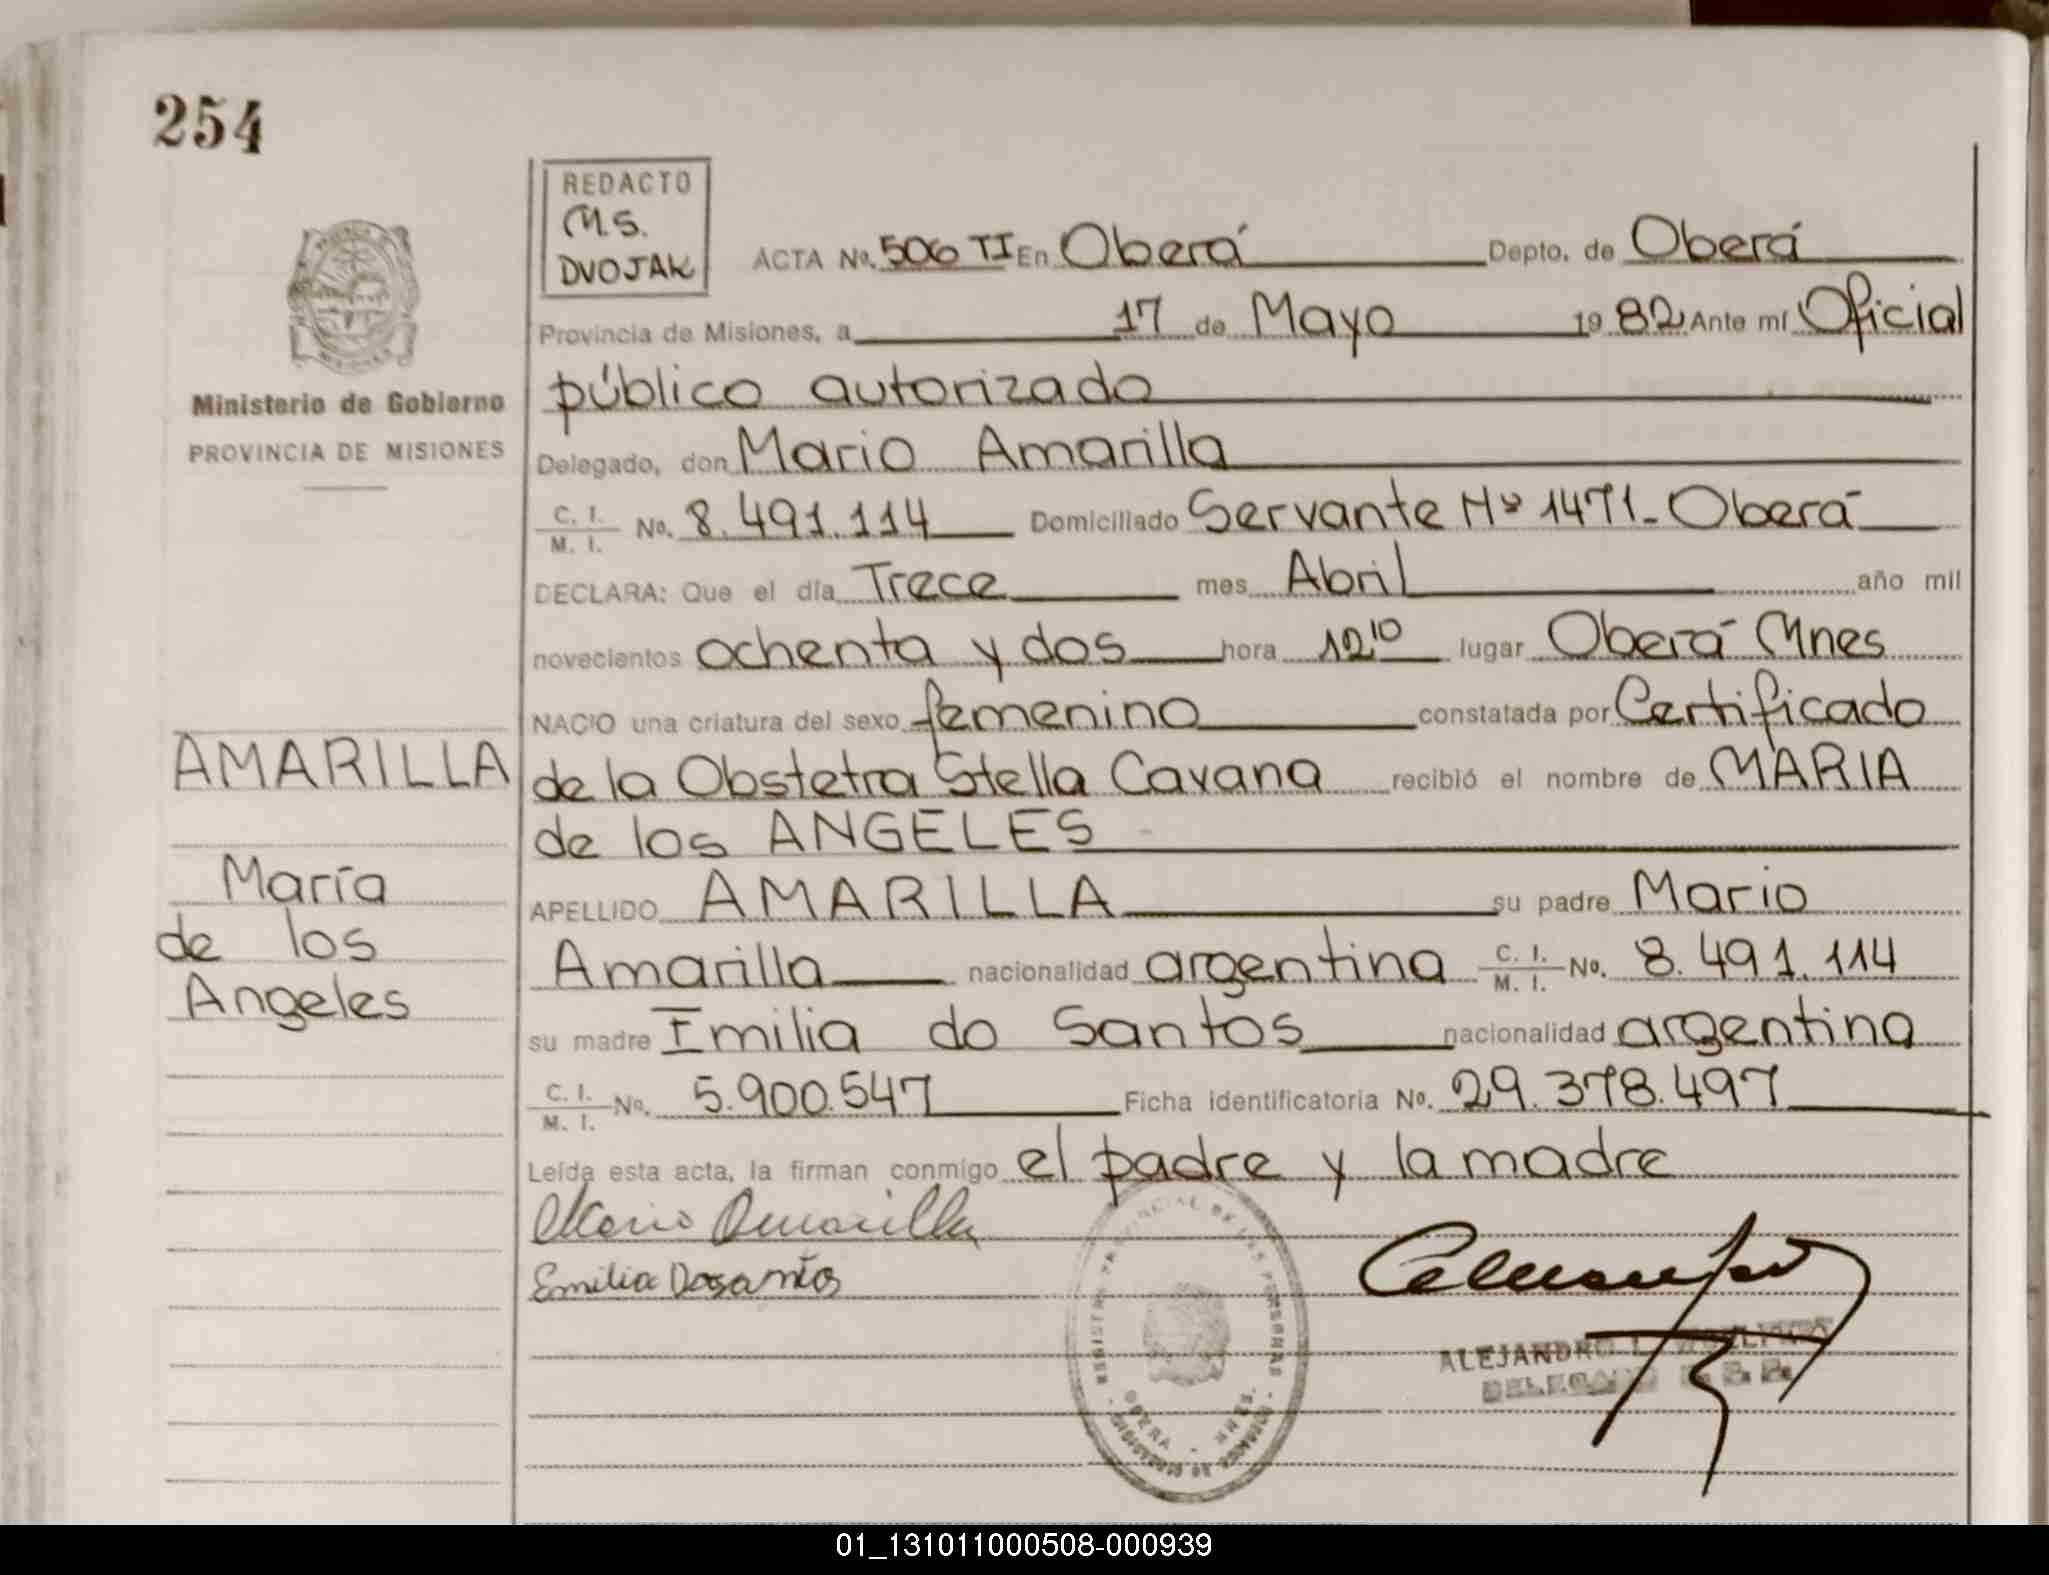 254
REDACTO
M.S.
DVOJAK
ACTA No. 506 TI En Oberá Depto. de Oberá
Provincia de Misiones, a 17 de Mayo 19 82 Ante mí Oficial
público autorizado
Ministerio de Gobierno
PROVINCIA DE MISIONES
Delegado, don Mario Amarilla
C. I. / M. I. No. 8.491.114 Domiciliado Servante Nº 1471 - Oberá
DECLARA: Que el día Trece mes Abril año mil
novecientos ochenta y dos hora 12 10 lugar Oberá Mnes
NACIO una criatura del sexo femenino constatada por Certificado
AMARILLA
de la Obstetra Stella Cavana recibió el nombre de MARIA
de los ANGELES
María
de los
Angeles
APELLIDO AMARILLA su padre Mario
Amarilla nacionalidad argentina C. I. / M. I. No. 8.491.114
su madre Emilia do Santos nacionalidad argentina
C. I. / M. I. No. 5.900.547 Ficha identificatoria No. 29.378.497
Leída esta acta, la firman conmigo el padre y la madre
Mario Amarilla
Emilia Dosantos
REGISTRO PROVINCIAL DE LAS PERSONAS
OBERA
ALEJANDRO
DELEGADO
01_131011000508-000939